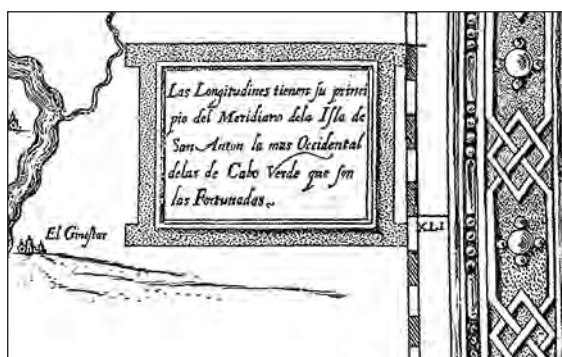 Las Longitudines tienen ſu princi
pio del Meridiano dela Iſla de
San Anton la mas Occidental
delas de Cabo Verde que ſon
las Fortunadas.
XLI
El Gineſtar